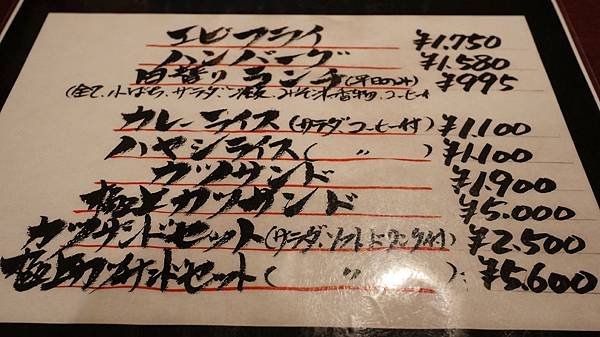 エビフライ ¥1.750
ハンバーグ ¥1.580
日替りランチ(平日のみ) ¥995
(全て、小ばち、サラダ、ご飯、みそ汁、香物、コーヒー付
カレーライス(サラダ、コーヒー付) ¥1.100
ハヤシライス( 〃 ) ¥1.100
カツサンド ¥1.900
極上カツサンド ¥5.000
カツサンドセット(サラダ、ソフトドリンク付) ¥2.500
極上カツサンドセット( 〃 ) ¥5.600